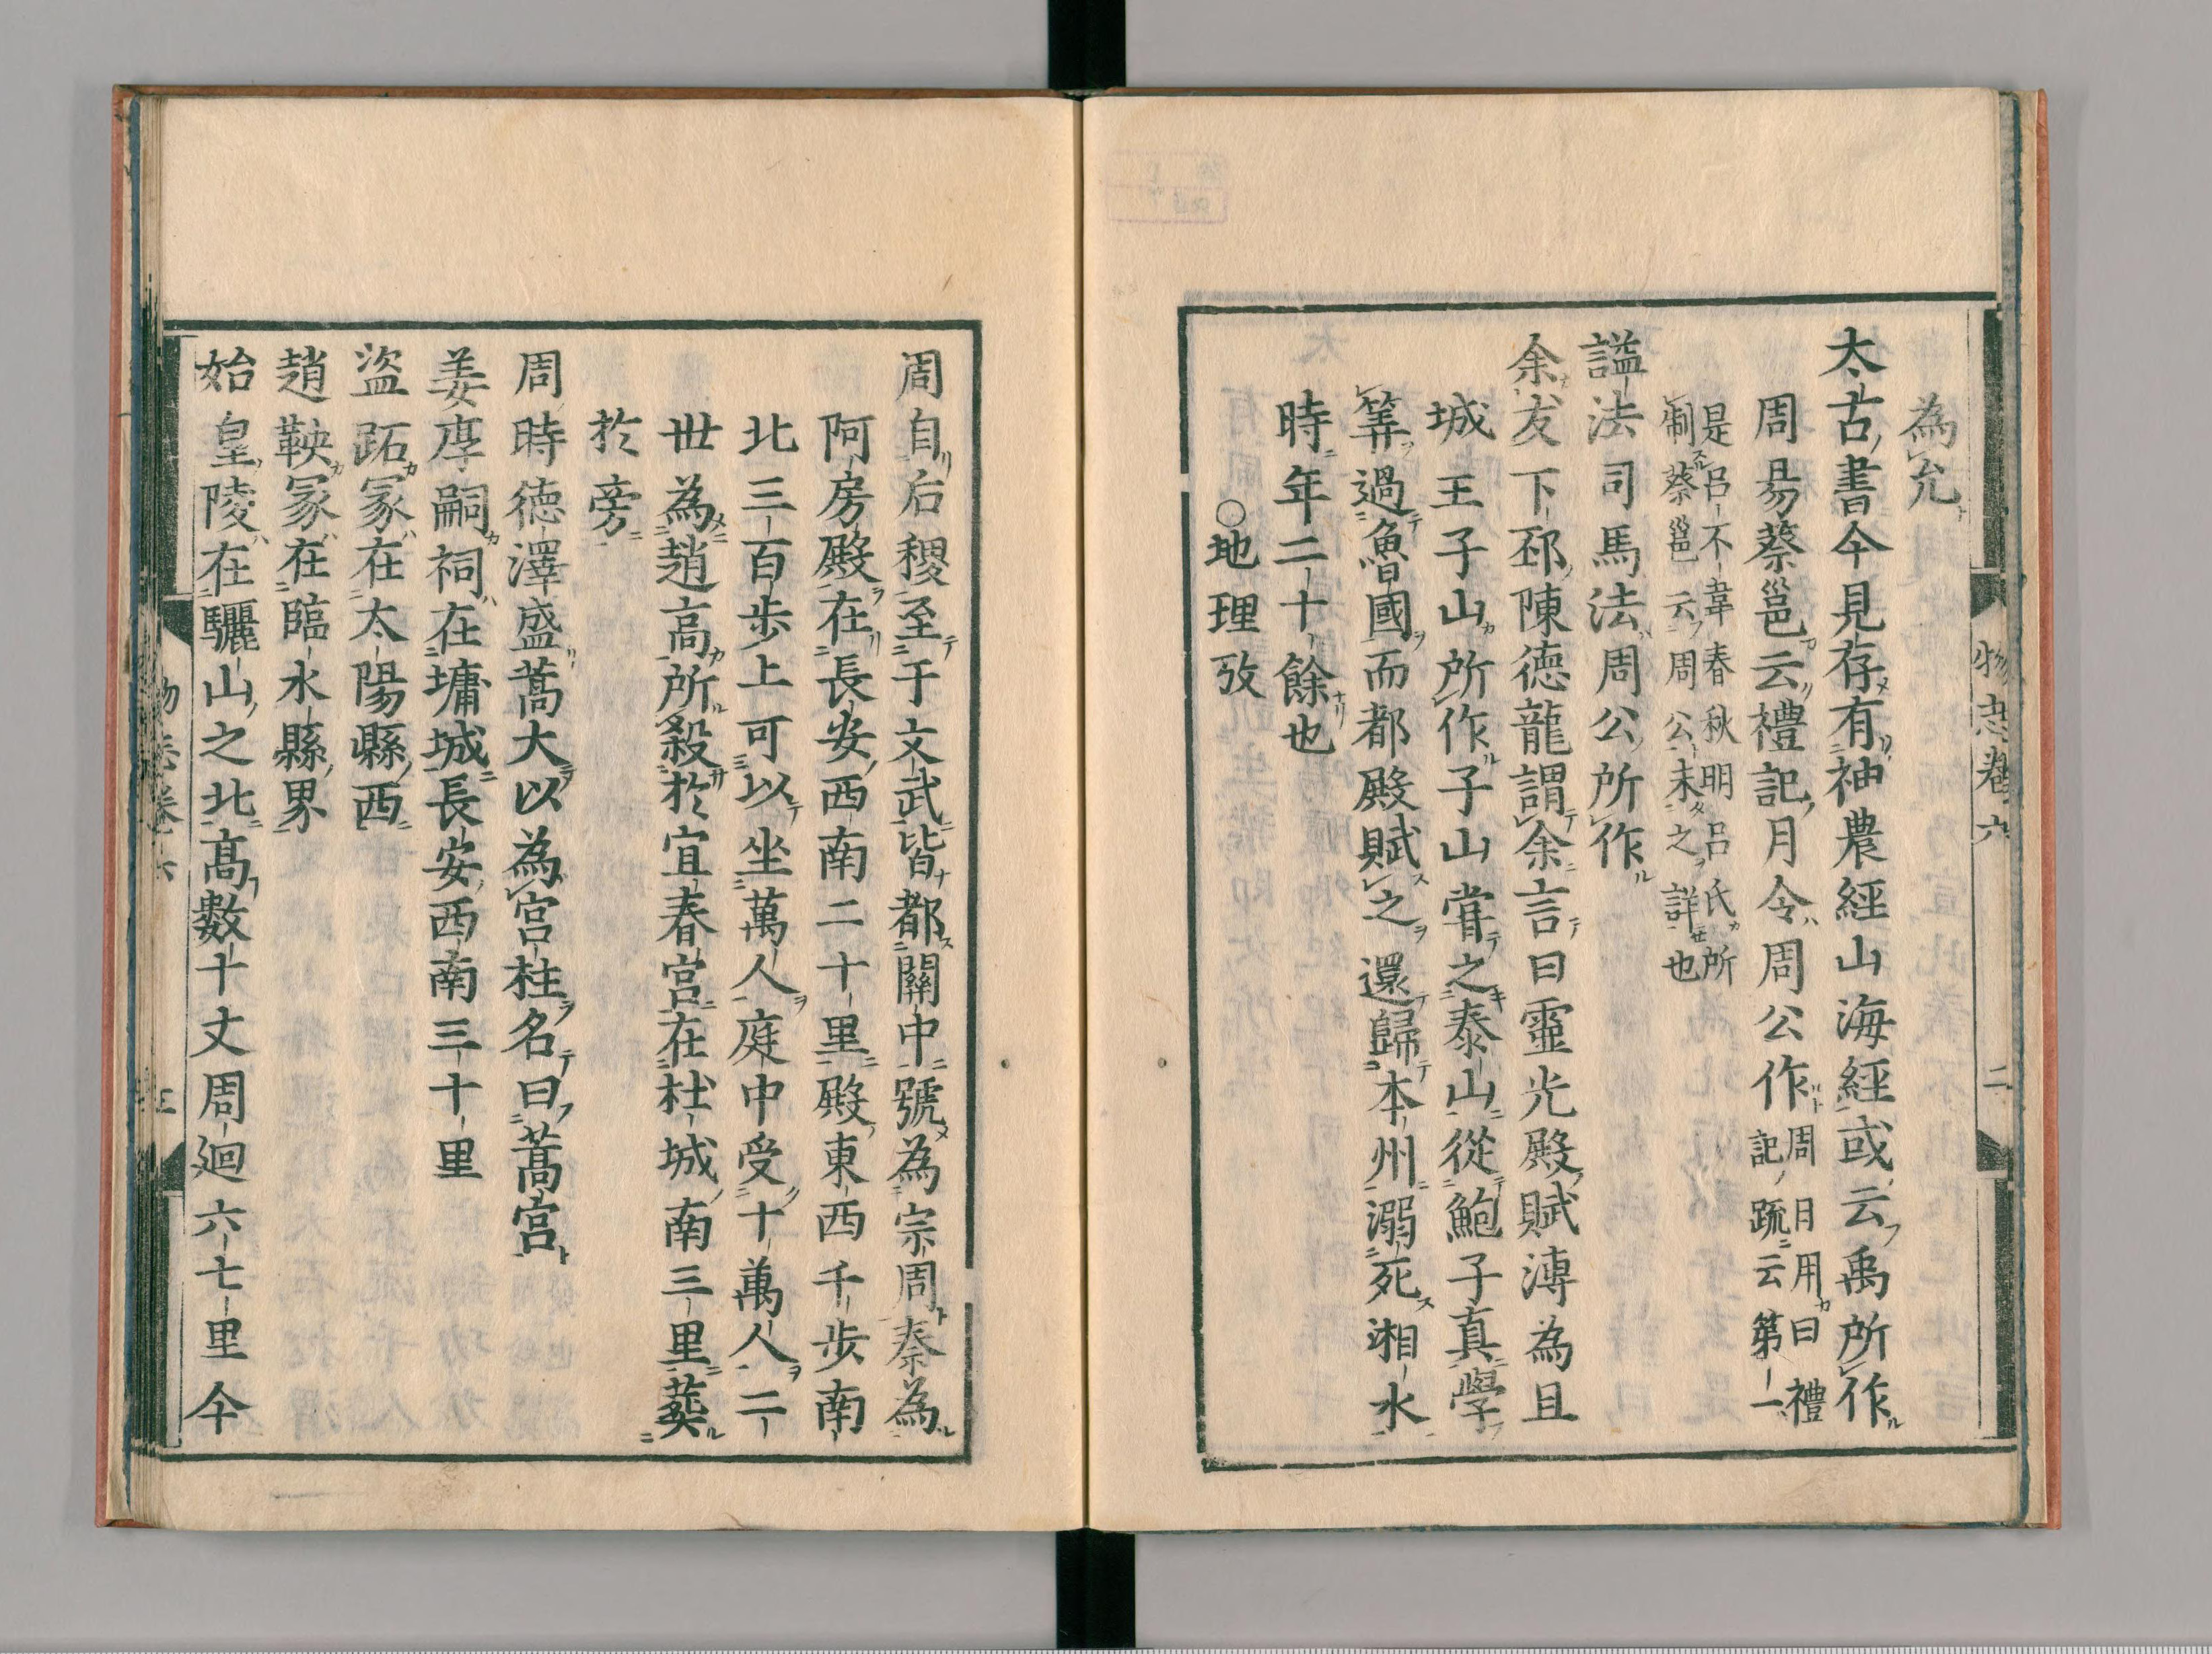 物志卷六 二
為允
太古書今見存有神農經山海經或云禹所作
周易蔡邕云禮記月令周公作周月用曰禮記疏云第一
是呂不韋春秋明呂氏所制蔡邕云周公未之詳也
謚法司馬法周公所作
余友下邳陳徳龍謂余言曰靈光殿賦溥為且
城王子山所作子山嘗之泰山從鮑子真學
筭過魯國而都殿賦之還歸本州溺死湘水
時年二十餘也
○地理攷
周自后稷至于文武皆都關中號為宗周秦為
阿房殿在長安西南二十里殿東西千歩南
北三百歩上可以坐萬人庭中受十萬人二
世為趙高所殺於宜春宮在杜城南三里葬
於旁
周時徳澤盛蒿大以為宮柱名曰蒿宮
姜嫄嗣祠在墉城長安西南三十里
盜跖冢在太陽縣西
趙鞅冢在臨水縣界
始皇陵在驪山之北髙數十丈周迴六七里今
物志卷六 三